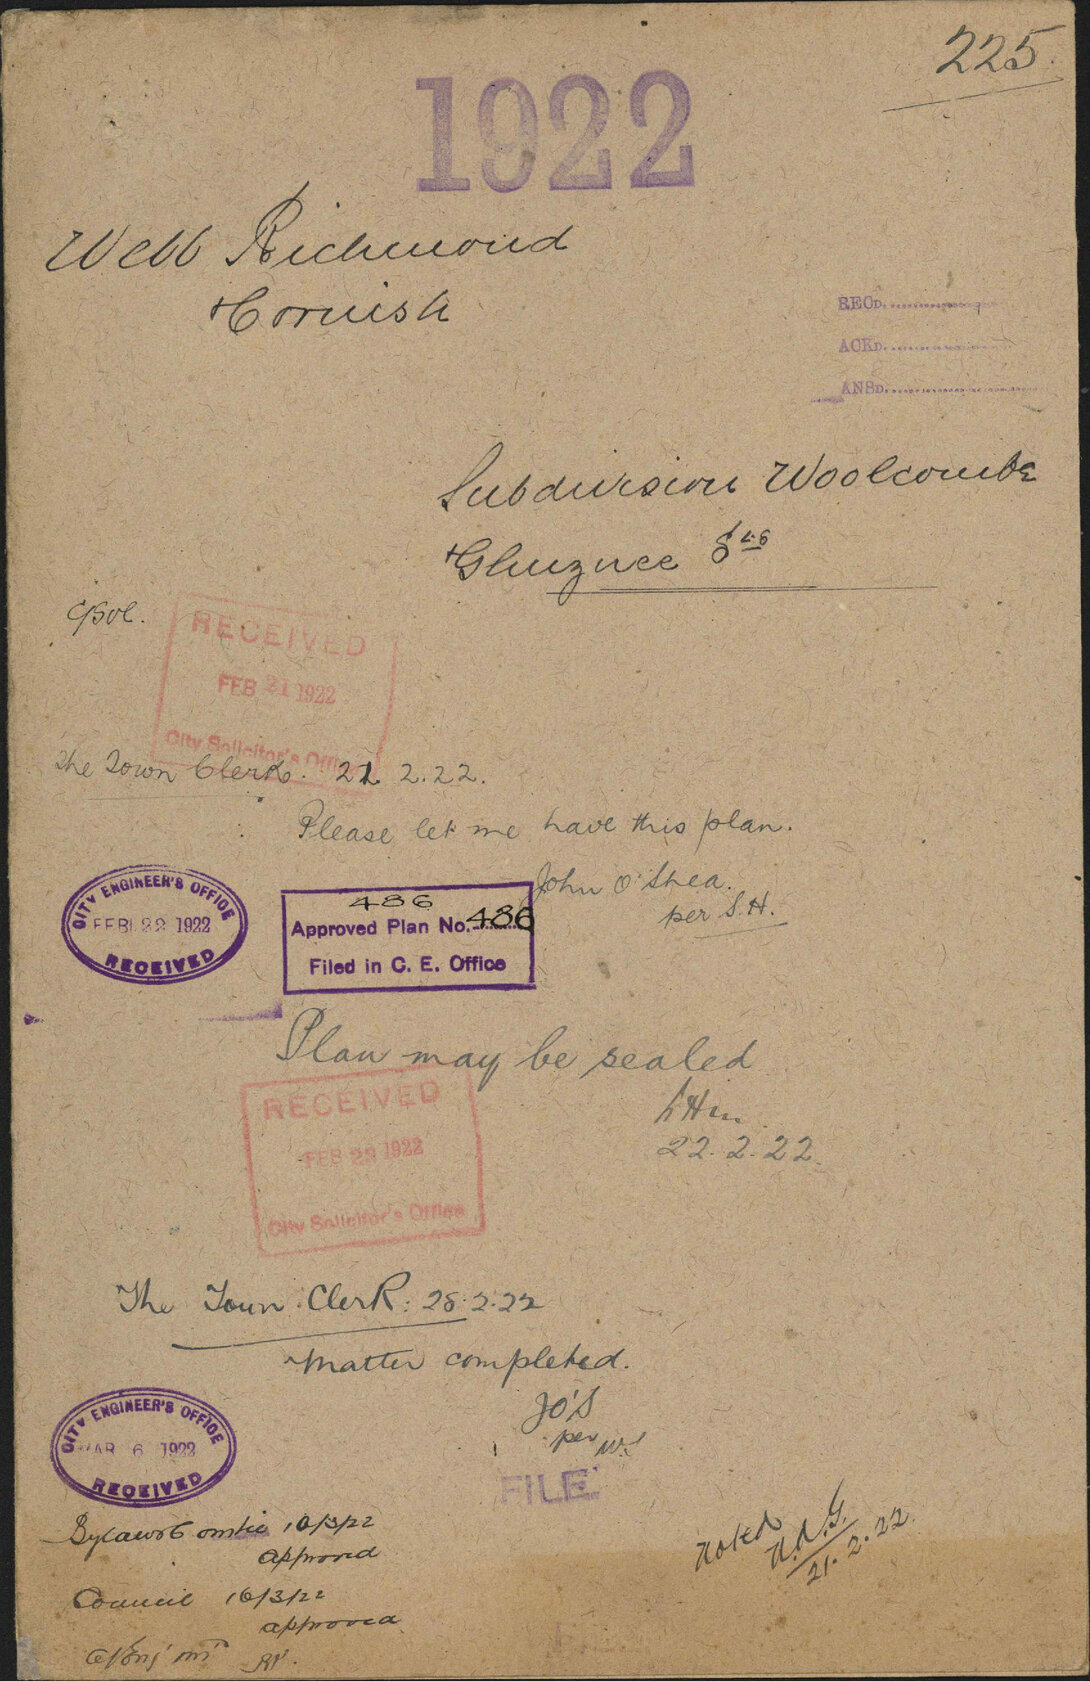 225.
1922
Webb Richmond
& Cornish
RECD.
ACKD.
ANSD.
Subdivision Woolcombe
& Ghuznee Sts
RECEIVED
FEB 21 1922
City Solicitor's Office
The Town Clerk. 21.2.22.
Please let me have this plan.
John O'Shea.
per S.H.
CITY ENGINEER'S OFFICE
FEB 22 1922
RECEIVED
486
Approved Plan No. 486
Filed in C. E. Office
Plan may be sealed
22.2.22
RECEIVED
FEB 1922
City Solicitor's Office
The Town Clerk: 28.2.22
Matter completed.
JO'S
per
CITY ENGINEER'S OFFICE
MAR 6 1922
RECEIVED
FILE
Bylaws Comtee 10/3/22
approved
Council 16/3/22
approved
Noted
21.2.22.